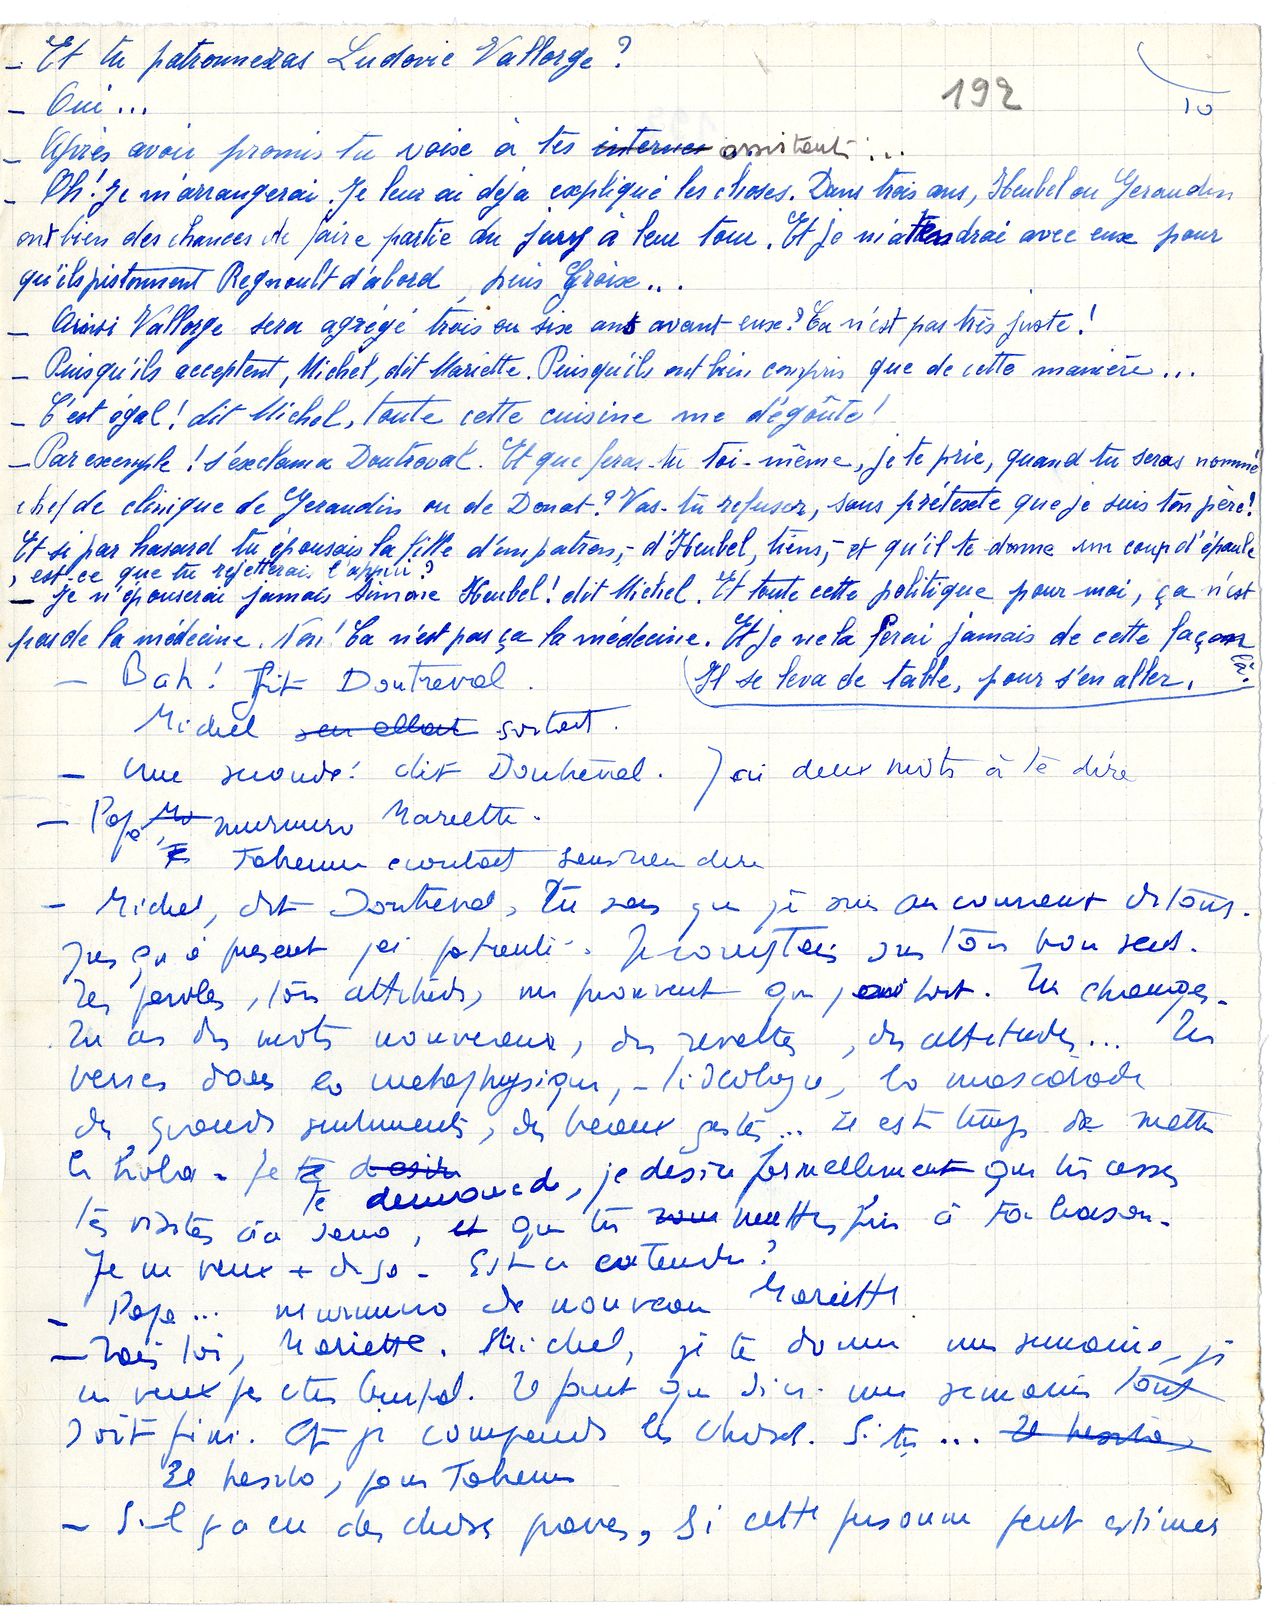 – Et tu patronneras Ludovic Vallorge ?
192
10
– Oui...
– Après avoir promis ta voix à tes internes assistants...
– Oh ! Je m'arrangerai. Je leur ai déjà expliqué les choses. Dans trois ans, Heubel ou Geraudin
ont bien des chances de faire partie du jury à leur tour. Et je m'attendrai avec eux pour
qu'ils pistonnent Regnoult d'abord, puis Groix...
– Ainsi Vallorge sera agrégé trois ou six ans avant eux ? Ça n'est pas très juste !
– Puisqu'ils acceptent, Michel, dit Mariette. Puisqu'ils ont bien compris que de cette manière...
– C'est égal ! dit Michel, toute cette cuisine me dégoûte !
– Par exemple ! s'exclama Doutreval. Et que feras-tu toi-même, je te prie, quand tu seras nommé
chef de clinique de Geraudin ou de Donat ? Vas-tu refuser, sous prétexte que je suis ton père !
Et si par hasard tu épousais la fille d'un patron, – d'Heubel, tiens, – et qu'il te donne un coup d'épaule
, est-ce que tu rejetterais l'appui ?
– Je n'épouserai jamais Simone Heubel ! dit Michel. Et toute cette politique pour moi, ça n'est
pas de la médecine. Non ! Ça n'est pas ça la médecine. Et je ne la ferai jamais de cette façon
là !
– Bah ! fit Doutreval.
Il se leva de table, pour s'en aller.
Michel s'en allait sortait.
– Une seconde ! dit Doutreval. J'ai deux mots à te dire
– Papa, murmura Mariette.
Fabienne écoutait sans rien dire
– Michel, dit Doutreval, tu sais que je suis au courant de tout.
Jusqu'à présent j'ai patienté. Je comptais sur ton bon sens.
Tes paroles, ton attitude, me prouvent que j'ai tort. Tu changes.
Tu as des mots nouveaux, des révoltes, des attitudes... Tu
verses dans la métaphysique, – l'idéologie, la mascarade
des grands sentiments, des beaux gestes... Il est temps de mettre
le holà. Je te désire
te demande, je désire formellement que tu cesses
tes visites au sana, et que tu mettes fin à ta liaison.
Je ne veux + de ça. Est-ce entendu ?
– Papa... murmura de nouveau Mariette
– Tais toi, Mariette. Michel, je te donne une semaine, je
ne veux pas être brutal. Il faut que d'ici une semaine tout
soit fini. Et je comprends les choses. Si tu... Il hésita,
Il hésita, pour Fabienne
– S'il y a eu des choses graves, si cette personne peut estimer